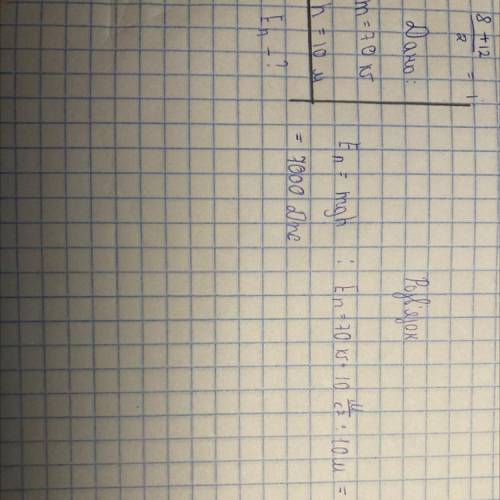 8 + 12 / 2 = 1
Дано:
m = 70 кг
h = 10 м
Eп - ?
Розв'язок
Eп = mgh ; Eп = 70 кг · 10 м/с² · 10 м =
= 7000 Дж